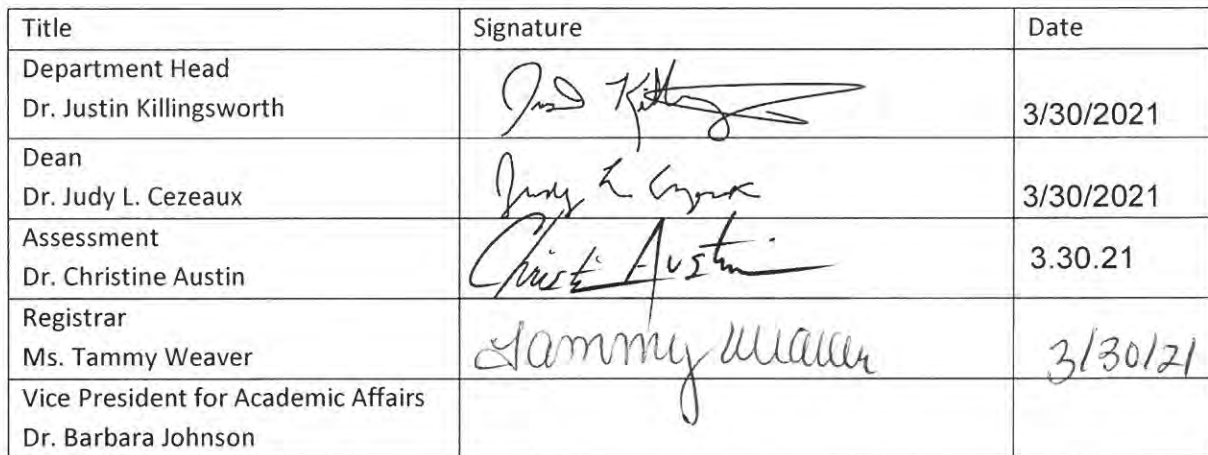 Title Signature Date
Department Head
Dr. Justin Killingsworth
3/30/2021
Dean
Dr. Judy L. Cezeaux Judy L 3/30/2021
Assessment
Dr. Christine Austin Christi Austin 3.30.21
Registrar
Ms. Tammy Weaver Tammy Weaver 3/30/21
Vice President for Academic Affairs
Dr. Barbara Johnson